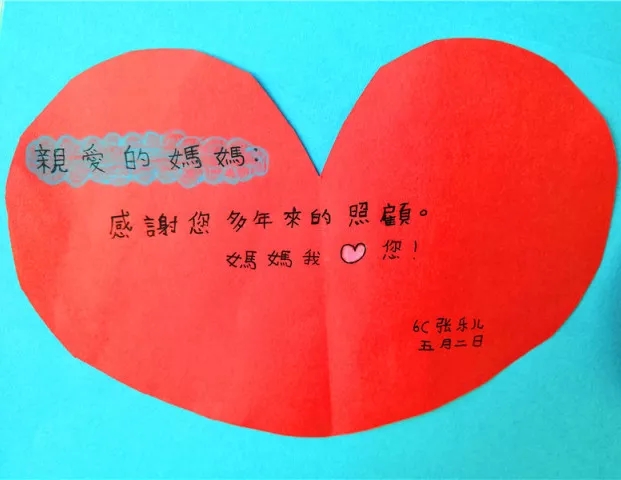 親愛的媽媽:
感謝您多年來的照顧。
媽媽我♡您!
6C张乐儿
五月二日